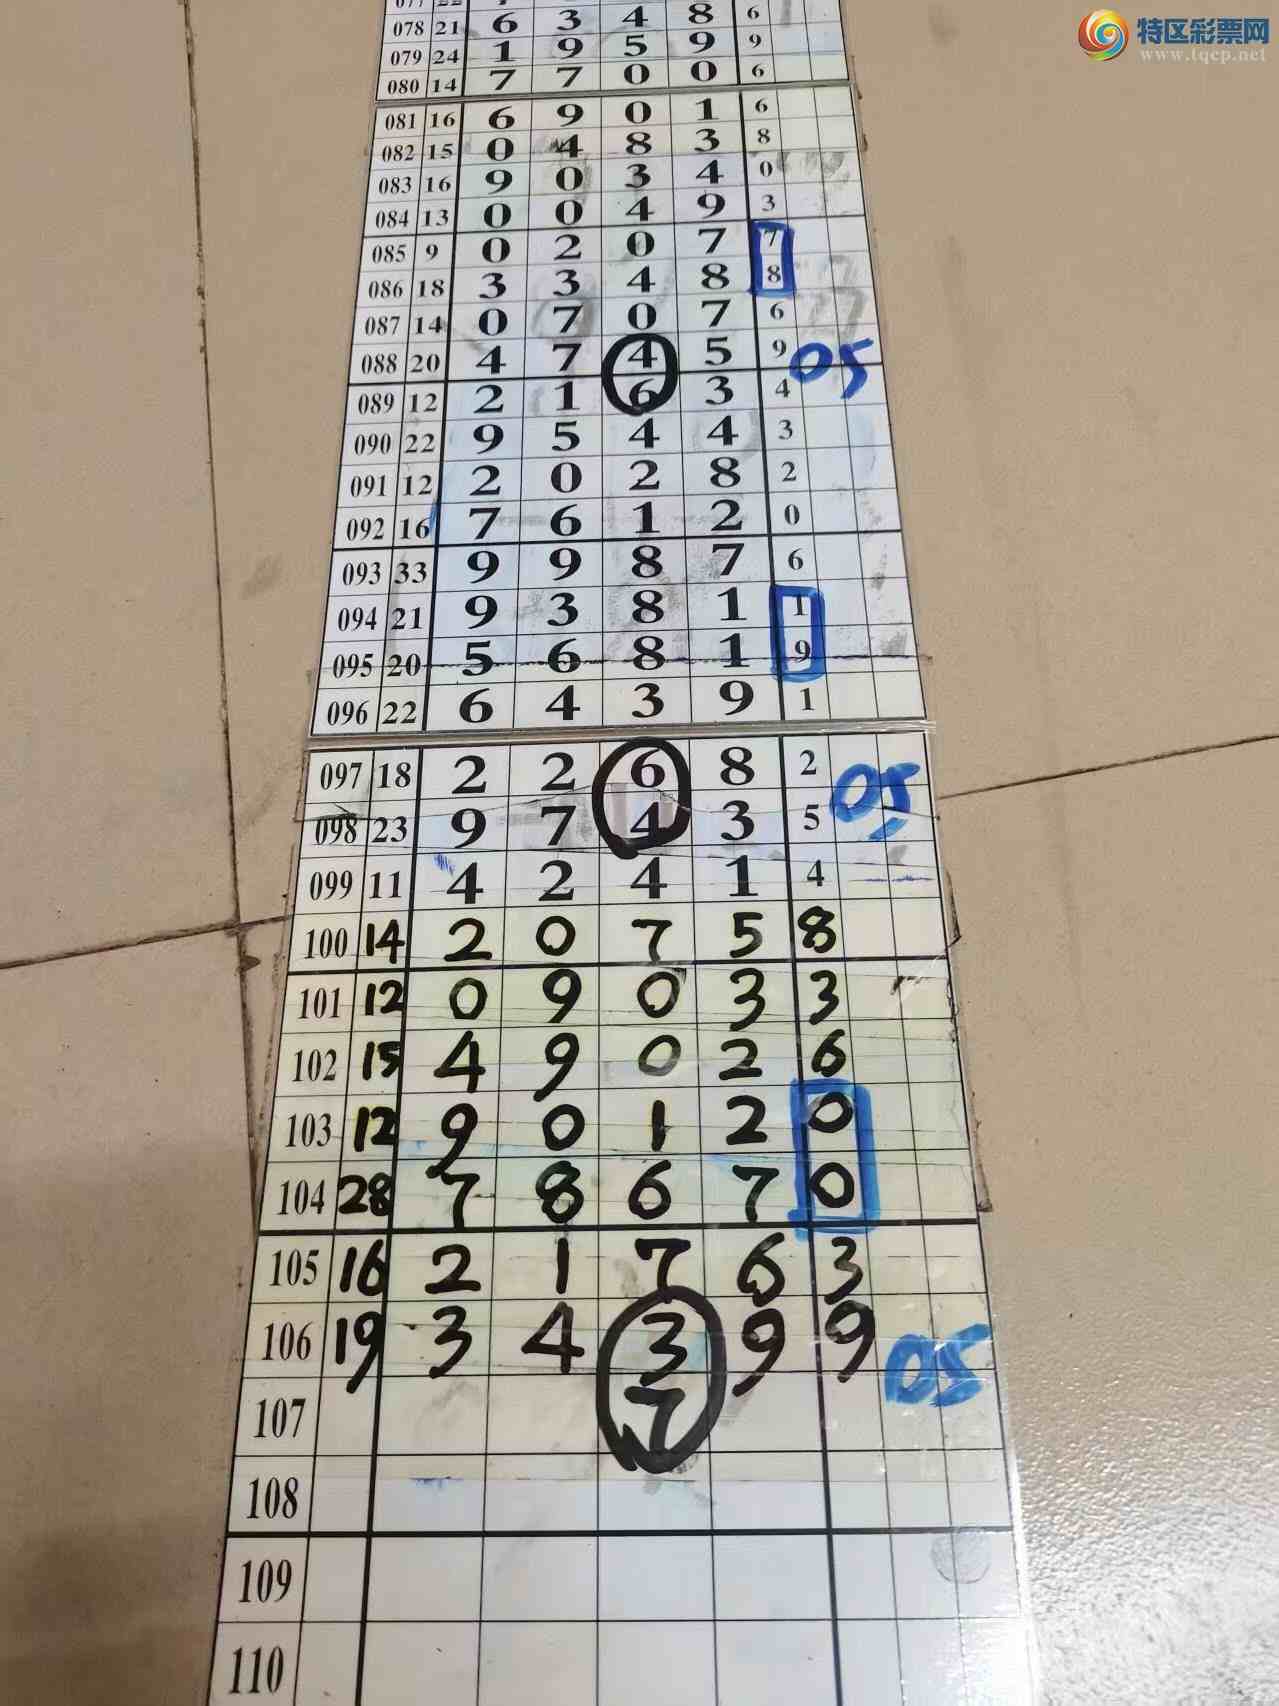 特区彩票网
www.tqcp.net
078 21 6 3 4 8 6
079 24 1 9 5 9 9
080 14 7 7 0 0 6
081 16 6 9 0 1 6
082 15 0 4 8 3 8
083 16 9 0 3 4 0
084 13 0 0 4 9 3
085 9 0 2 0 7 7
086 18 3 3 4 8 8
087 14 0 7 0 7 6
088 20 4 7 4 5 9 05
089 12 2 1 6 3 4
090 22 9 5 4 4 3
091 12 2 0 2 8 2
092 16 7 6 1 2 0
093 33 9 9 8 7 6
094 21 9 3 8 1 1
095 20 5 6 8 1 9
096 22 6 4 3 9 1
097 18 2 2 6 8 2 05
098 23 9 7 4 3 5
099 11 4 2 4 1 4
100 14 2 0 7 5 8
101 12 0 9 0 3 3
102 15 4 9 0 2 6
103 12 9 0 1 2 0
104 28 7 8 6 7 0
105 16 2 1 7 6 3
106 19 3 4 3 9 9 05
107 7
108
109
110